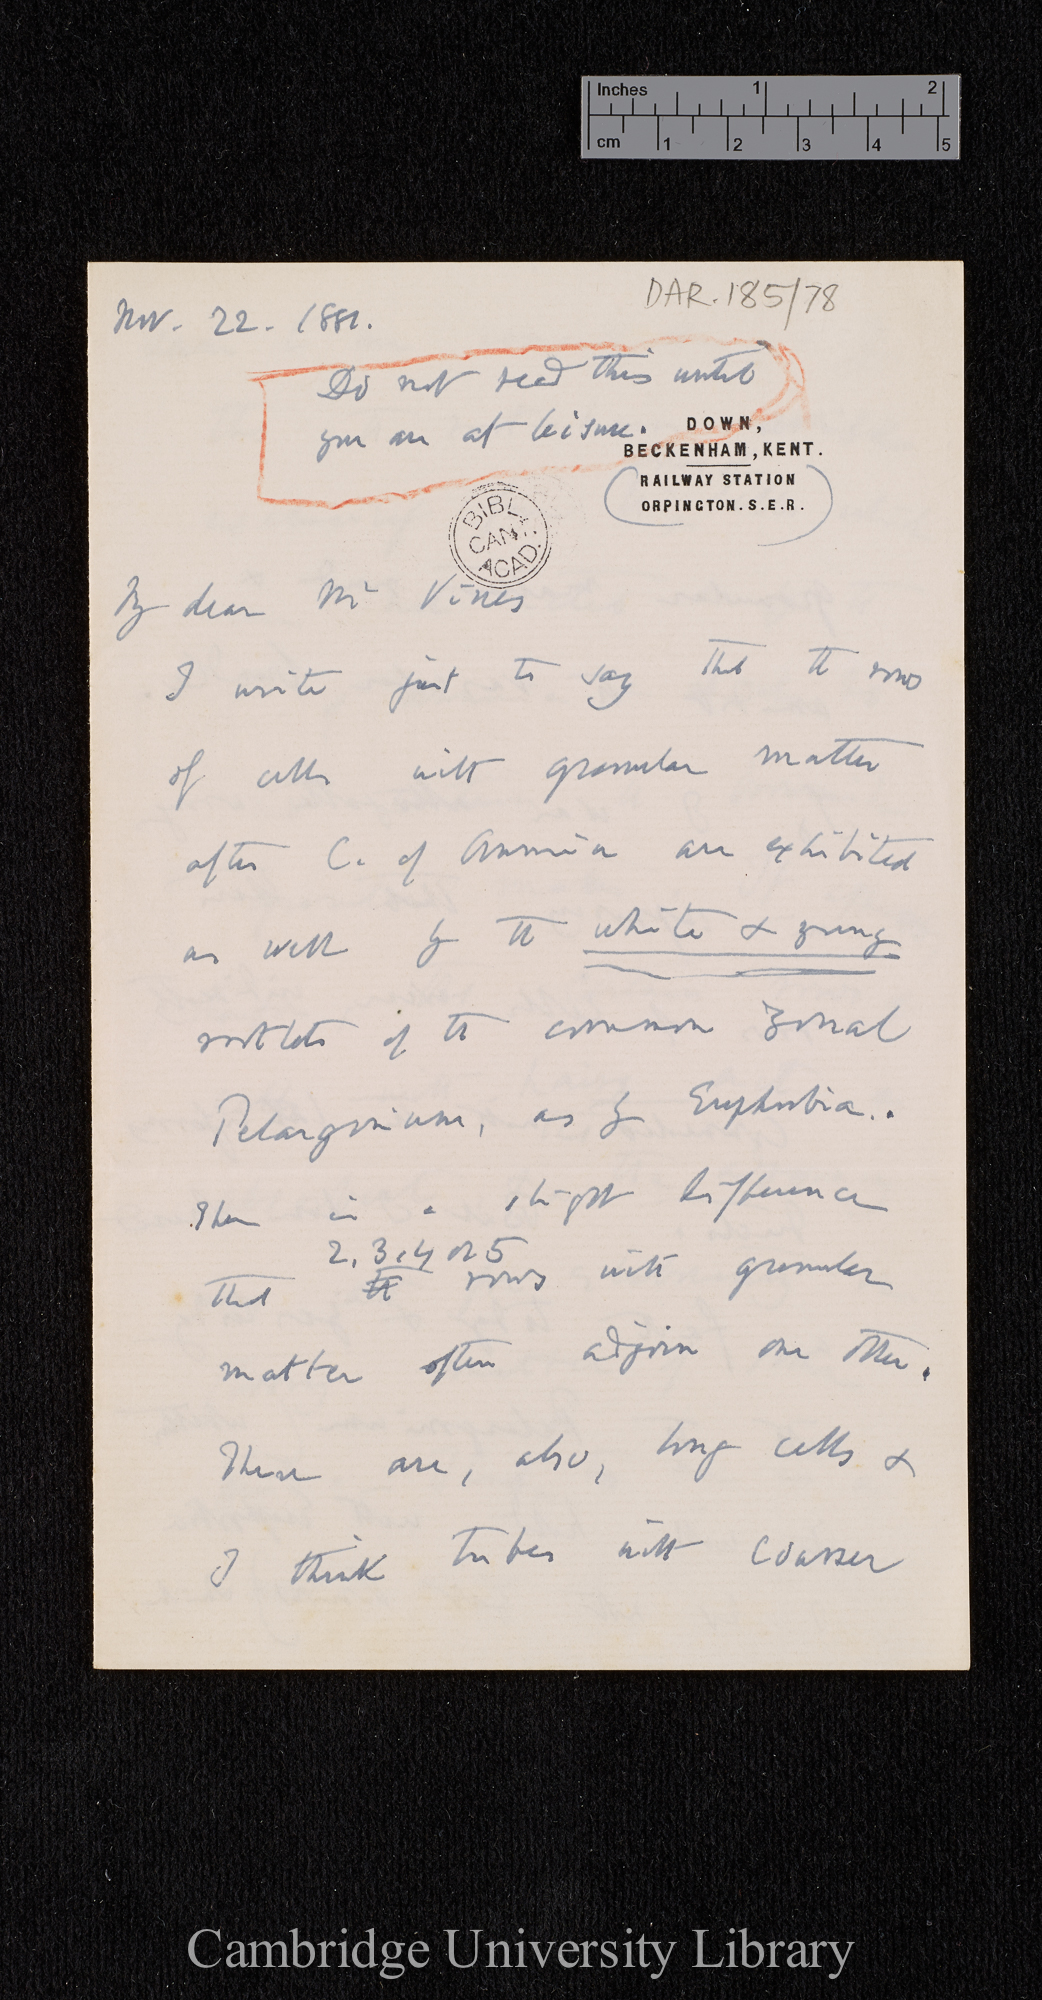 Inches 1 2
cm 1 2 3 4 5
DAR.185/78
Nov. 22. 1881.
Do not read this until
you are at leisure.
DOWN,
BECKENHAM, KENT.
RAILWAY STATION
ORPINGTON. S.E.R.
BIBL.
CANT.
ACAD.
My dear Mr Vines
I write just to say that the rows
of cells with granular matter
after C. of Ammonia are exhibited
as well by the white & young
rootlets of the common Zonal
Pelargonium, as by Euphorbia..
There is a slight difference
2, 3, 4 or 5
that the rows with granular
matter often adjoin one other.
There are, also, long cells &
I think tubes with coarser
Cambridge University Library